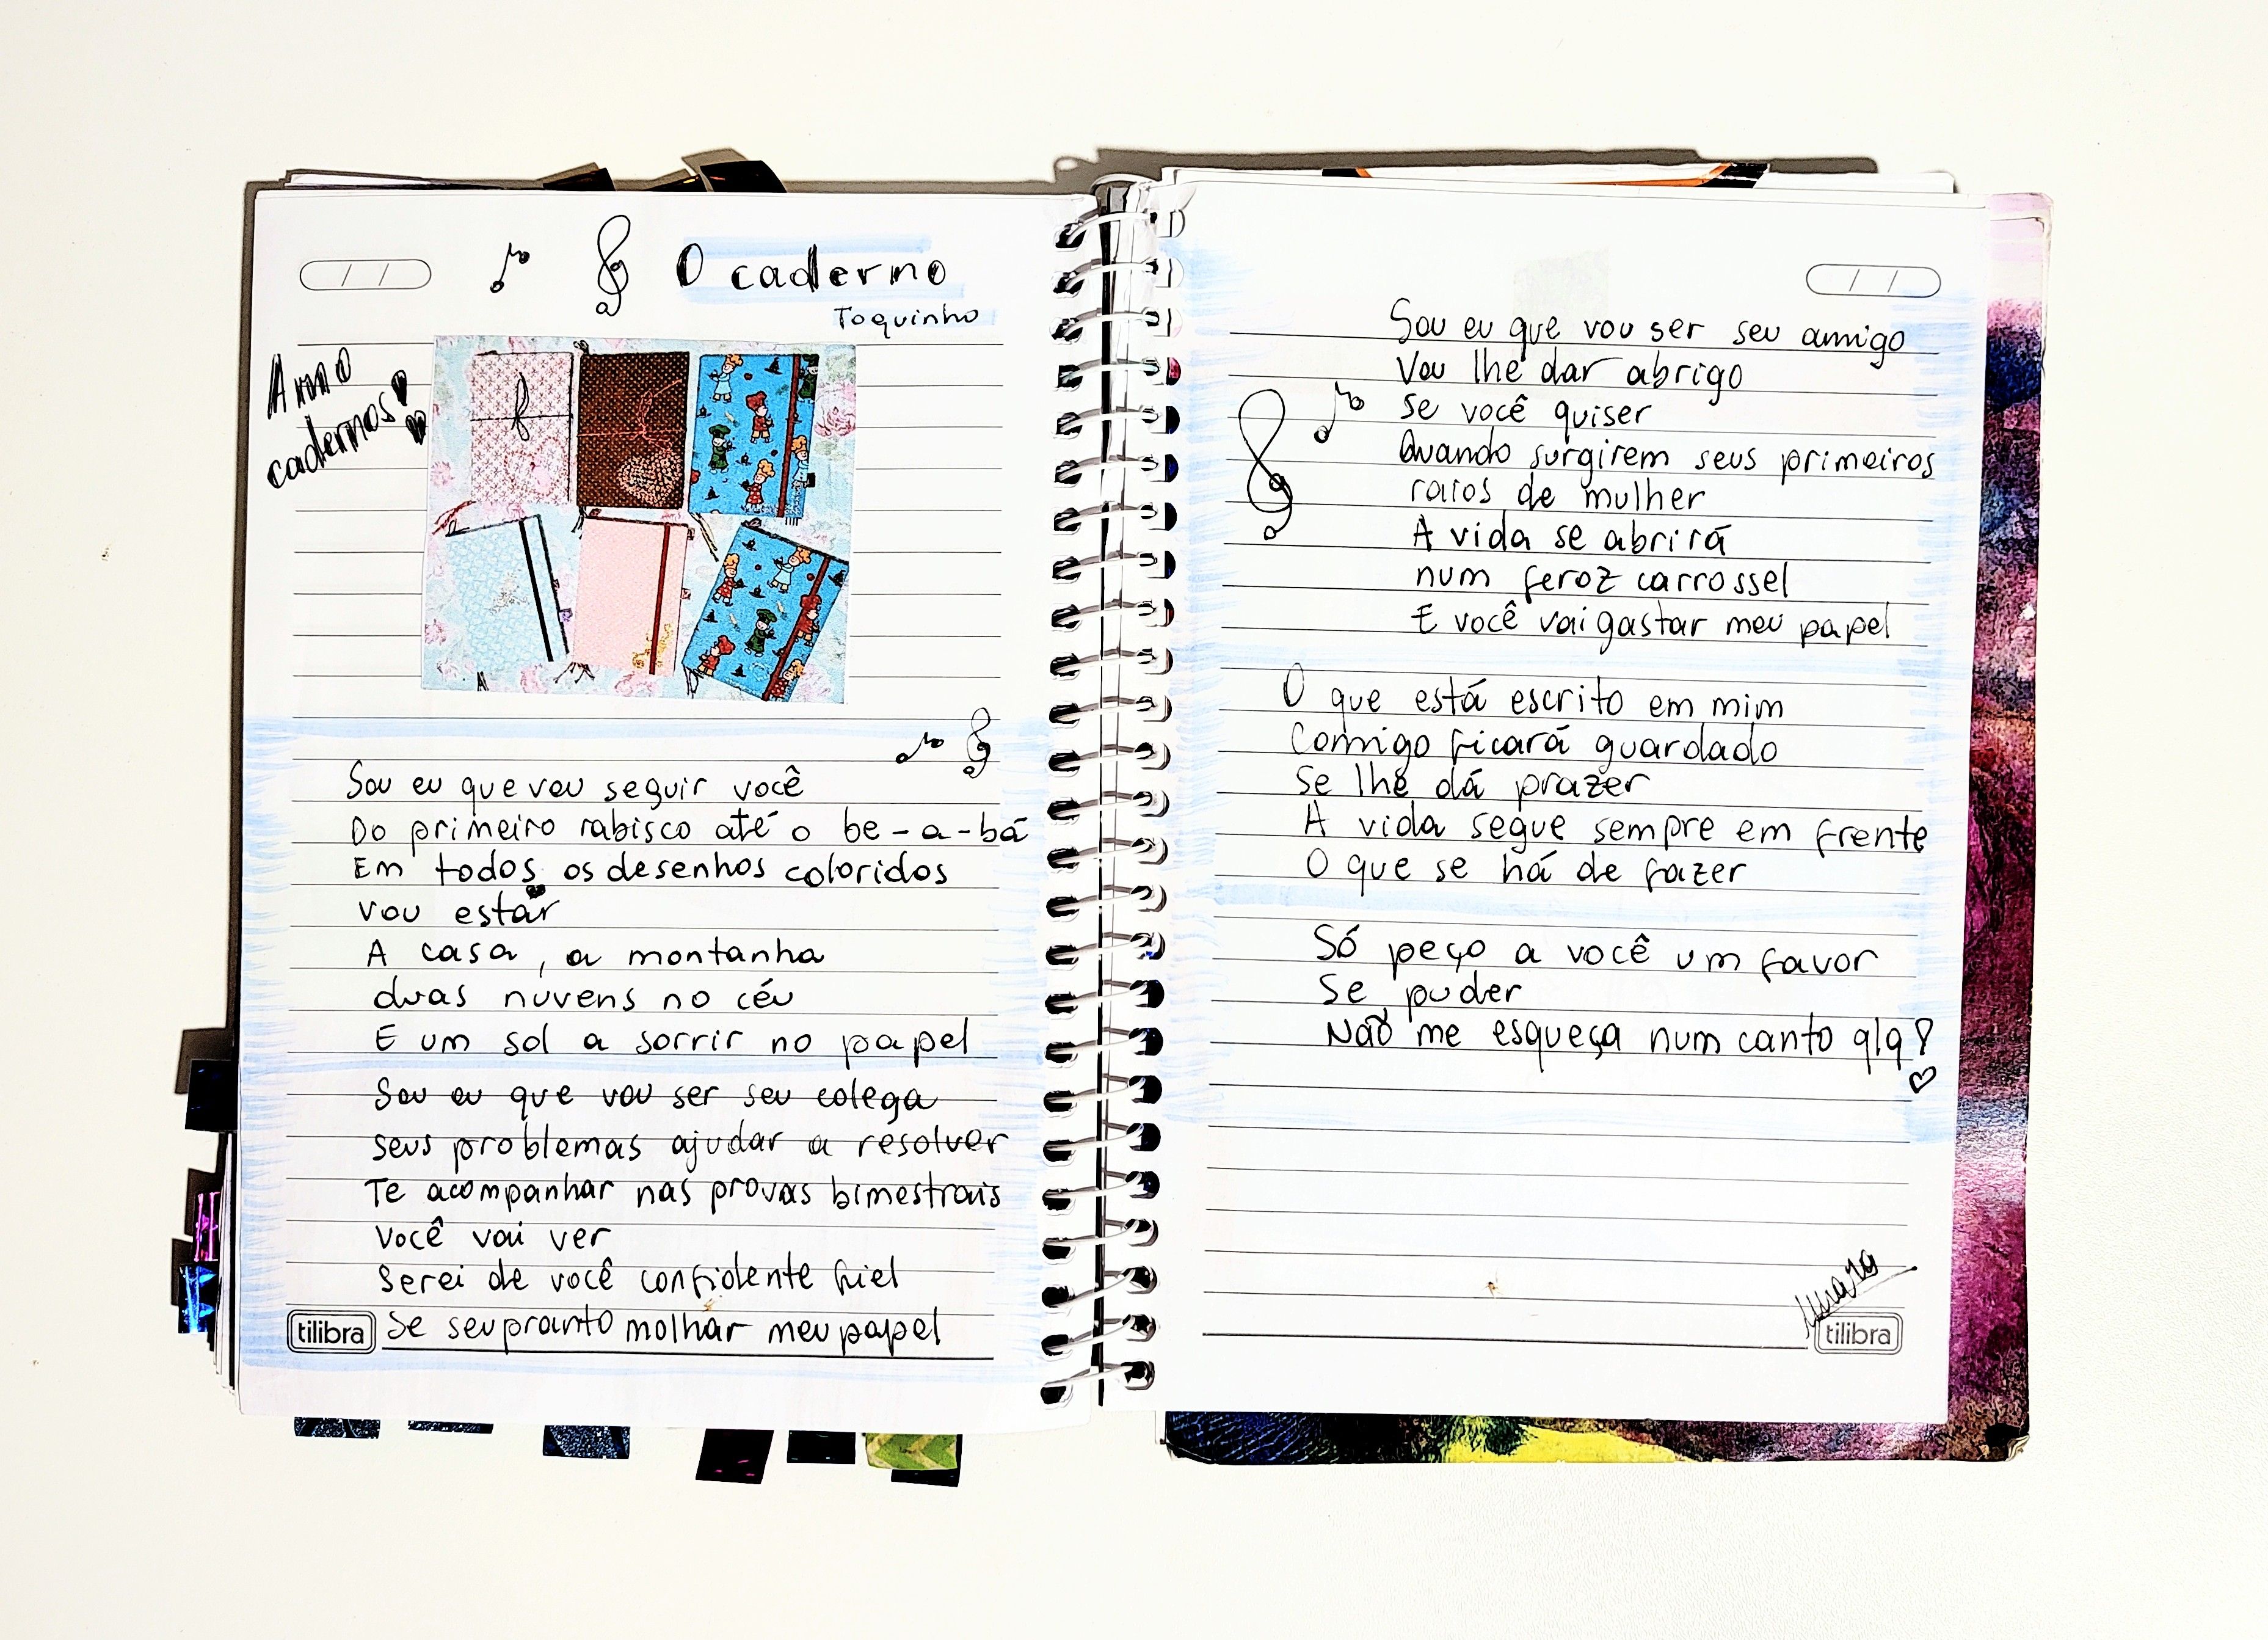 O caderno
Toquinho
Amo
cadernos!
Sou eu que vou seguir você
Do primeiro rabisco até o be-a-bá
Em todos os desenhos coloridos
vou estar
A casa, a montanha
duas nuvens no céu
E um sol a sorrir no papel
Sou eu que vou ser seu colega
seus problemas ajudar a resolver
Te acompanhar nas provas bimestrais
Você vai ver
Serei de você confidente fiel
Se seu pranto molhar meu papel
tilibra
Sou eu que vou ser seu amigo
Vou lhe dar abrigo
Se você quiser
Quando surgirem seus primeiros
raios de mulher
A vida se abrirá
num feroz carrossel
E você vai gastar meu papel
O que está escrito em mim
Comigo ficará guardado
Se lhe dá prazer
A vida segue sempre em frente
O que se há de fazer
Só peço a você um favor
Se puder
Não me esqueça num canto qlq!
tilibra